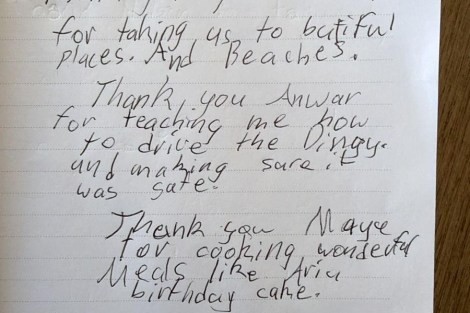 for taking us to butiful
places. And Beaches.
Thank you Anwar
for teaching me how
to drive the Dingy.
and making sure it
was safe.
Thank you Mayse
for cooking wonderful
Meals like
birthday cake.